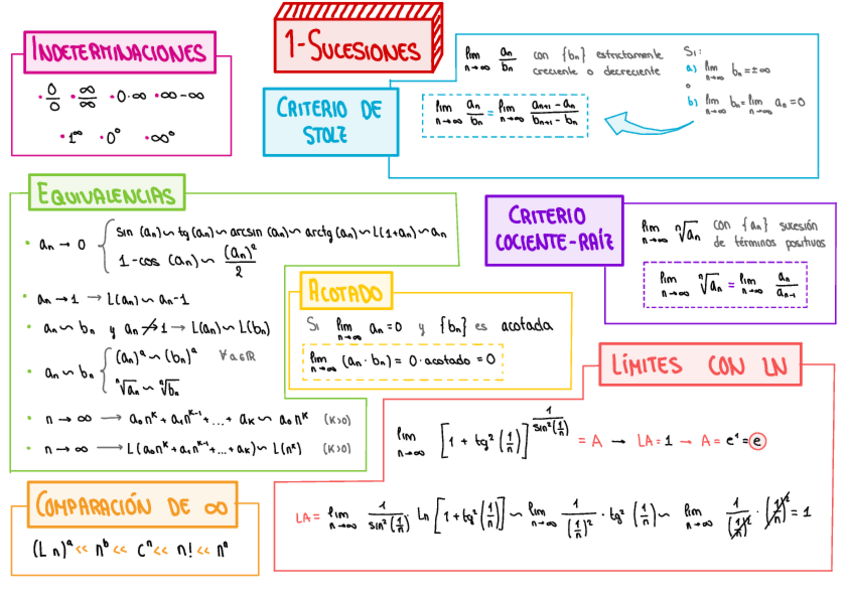 1-SUCESIONES
INDETERMINACIONES
• 0/0 • ∞/∞ • 0·∞ • ∞-∞
• 1^∞ • 0⁰ • ∞⁰
CRITERIO DE STOLZ
lim n→∞ an/bn con {bn} estrictamente creciente o decreciente
Si:
a) lim n→∞ bn = ±∞
o
b) lim n→∞ bn = lim n→∞ an = 0
lim n→∞ an/bn = lim n→∞ (an+1 - an)/(bn+1 - bn)
EQUIVALENCIAS
• an → 0 { sin (an) ~ tg (an) ~ arcsin (an) ~ arctg (an) ~ L(1+an) ~ an
1-cos (an) ~ (an)²/2
• an → 1 → L(an) ~ an-1
• an ~ bn y an ↛ 1 → L(an) ~ L(bn)
• an ~ bn { (an)^a ~ (bn)^a ∀a∈ℝ
ⁿ√an ~ ⁿ√bn
• n → ∞ → a0n^k + a1n^k-1 + ... + ak ~ a0n^k (k>0)
• n → ∞ → L(a0n^k + a1n^k-1 + ... + ak) ~ L(n^k) (k>0)
CRITERIO COCIENTE-RAÍZ
lim n→∞ ⁿ√an con {an} sucesión de términos positivos
lim n→∞ ⁿ√an = lim n→∞ an/an-1
ACOTADO
Si lim n→∞ an = 0 y {bn} es acotada
lim n→∞ (an · bn) = 0 · acotado = 0
LÍMITES CON LN
lim n→∞ [1 + tg² (1/n)]^(1/sin²(1/n)) = A → LA = 1 → A = e¹ = e
LA = lim n→∞ 1/sin²(1/n) · Ln [1 + tg² (1/n)] ~ lim n→∞ 1/(1/n)² · tg² (1/n) ~ lim n→∞ 1/(1/n)² · (1/n)² = 1
COMPARACIÓN DE ∞
(L n)^a << n^b << c^n << n! << n^n